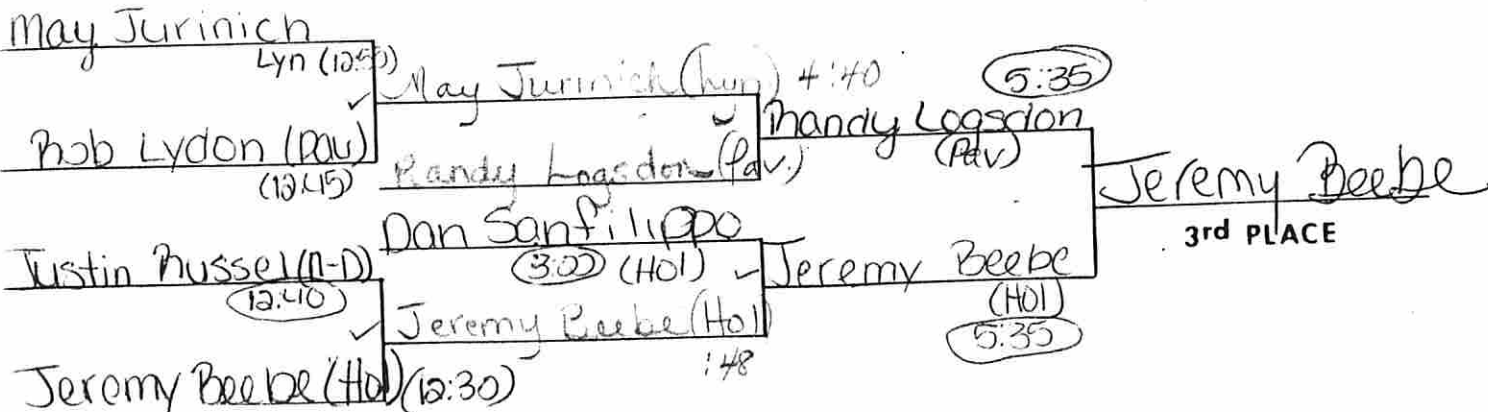 May Jurinich
Lyn (12:50)
Rob Lydon (Pav)
(12:45)
Justin Russel (N-D)
12:40
Jeremy Beebe (Hol) (12:30)
May Jurinich (Lyn) 4:40
Randy Logsdon (Pav.)
Dan Sanfilippo
3:00 (HOl)
Jeremy Beebe (Hol)
:48
5:35
Randy Logsdon
(Pav)
Jeremy Beebe
(HOl)
5:35
Jeremy Beebe
3rd PLACE